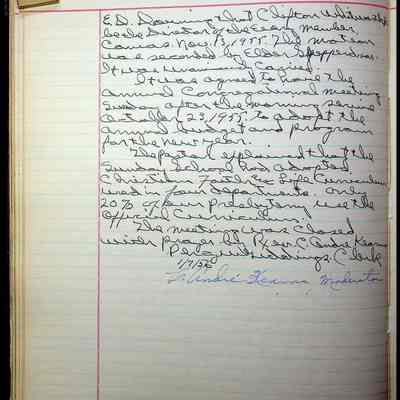 E.D. Downing that Clifton
be the Director of the Every Member
Canvas, Nov. 13, 1955. The motion
was seconded by Elder Shepperdson.
It was unanimously carried.
It was agreed to have the
annual Congregational meeting
Sunday after the morning service
October 23, 1955, to adopt the
annual budget and program
for the new year.
The pastor explained that the
Sunday School had adopted
Christian Faith & Life Curriculum
used in four departments. Only
20% of our presbytery use the
Official Curriculum.
The meeting was closed
with prayer by Rev. C. Andre Kearns
Giddings, Clerk
C. André Kearns, Moderator